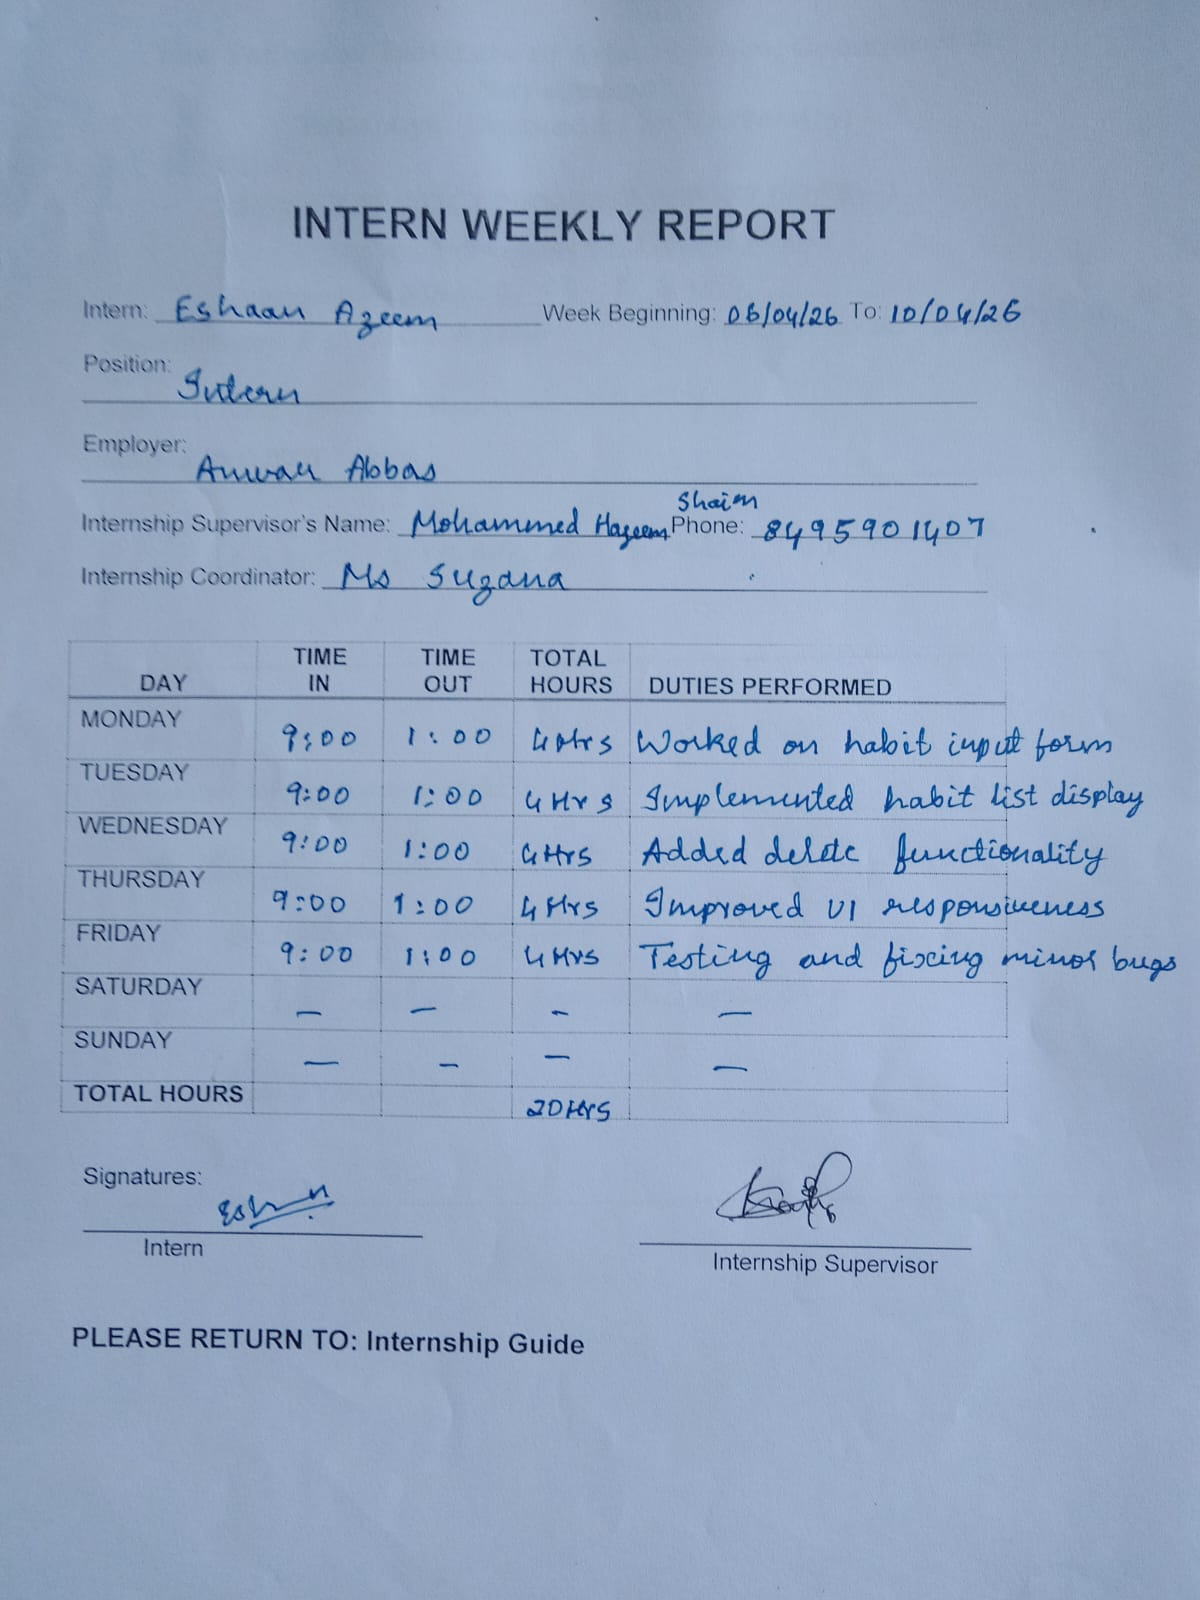 INTERN WEEKLY REPORT
Intern: Eshaan Azeem Week Beginning: 06/04/26 To: 10/04/26
Position: Intern
Employer: Anwar Abbas
Shaim
Internship Supervisor's Name: Mohammed Hazeem Phone: 8495901407
Internship Coordinator: Ms Suzana
DAY TIME IN TIME OUT TOTAL HOURS DUTIES PERFORMED
MONDAY 9:00 1:00 4Hrs Worked on habit input form
TUESDAY 9:00 1:00 4Hrs Implemented habit list display
WEDNESDAY 9:00 1:00 4Hrs Added delete functionality
THURSDAY 9:00 1:00 4Hrs Improved UI responsiveness
FRIDAY 9:00 1:00 4Hrs Testing and fixing minor bugs
SATURDAY — — — —
SUNDAY — — — —
TOTAL HOURS 20Hrs
Signatures:
Intern Internship Supervisor
PLEASE RETURN TO: Internship Guide